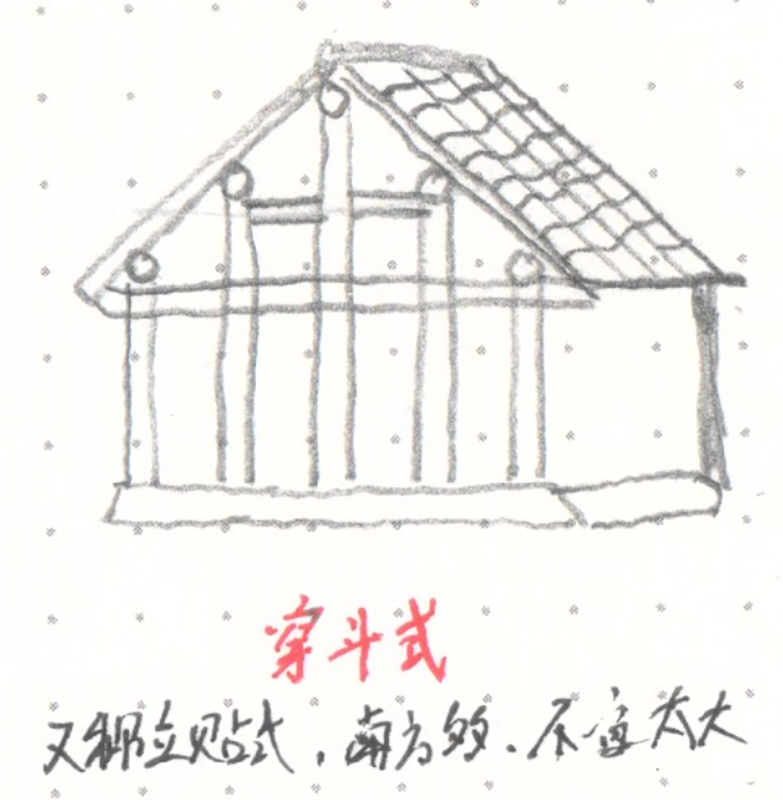 穿斗式
又称立贴式，南方多、不宜太大